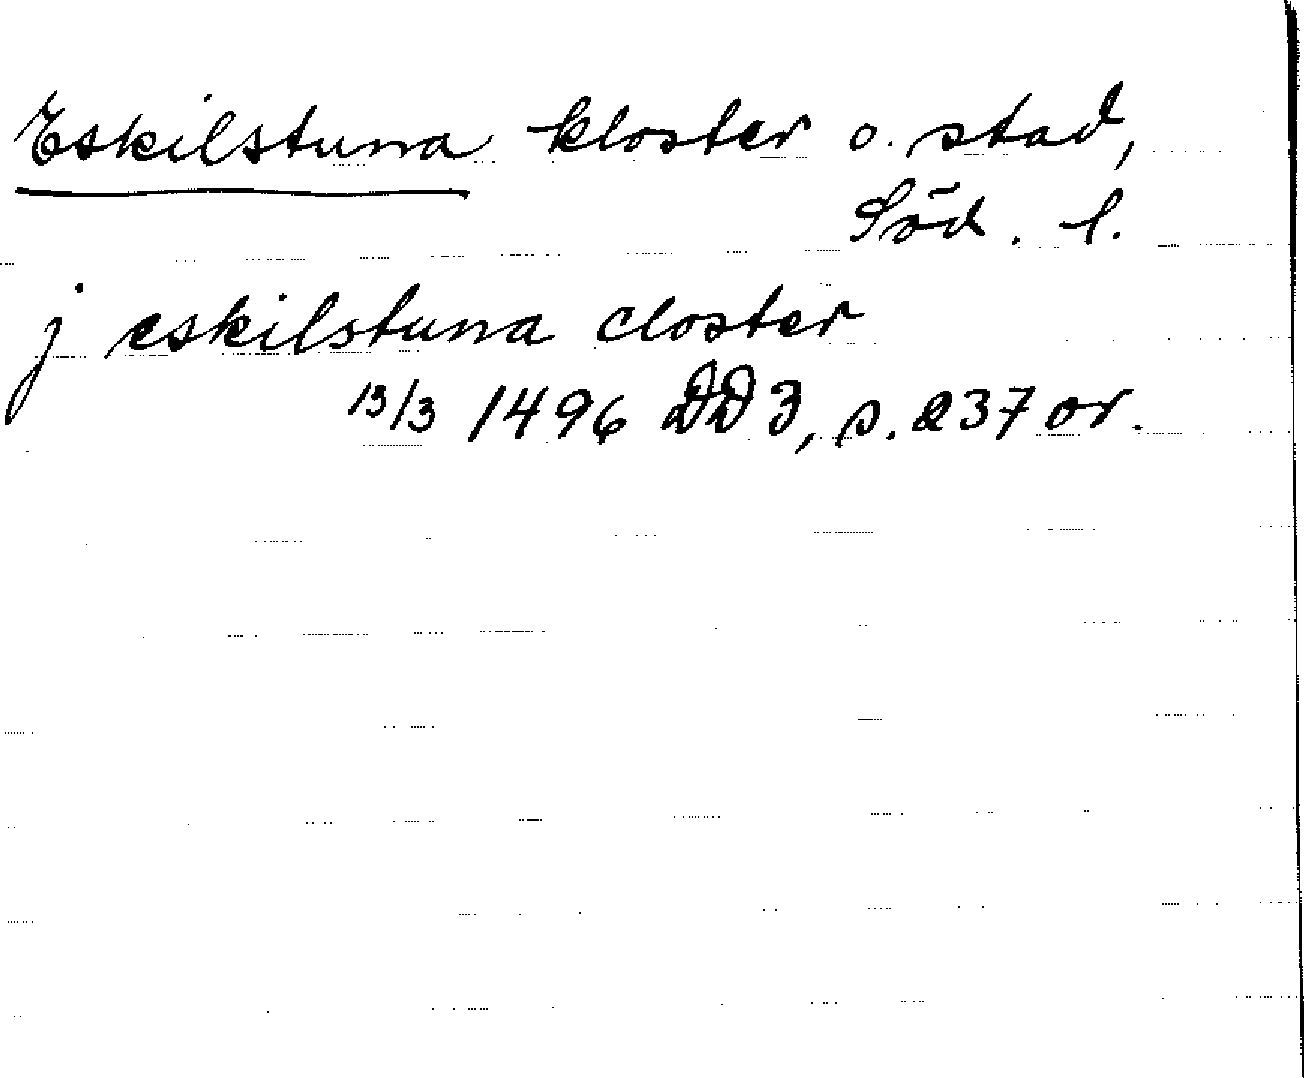 Eskilstuna kloster o. stad,
Söd. l.
j eskilstuna closter
13/3 1496 DD 3, s. 237 or.